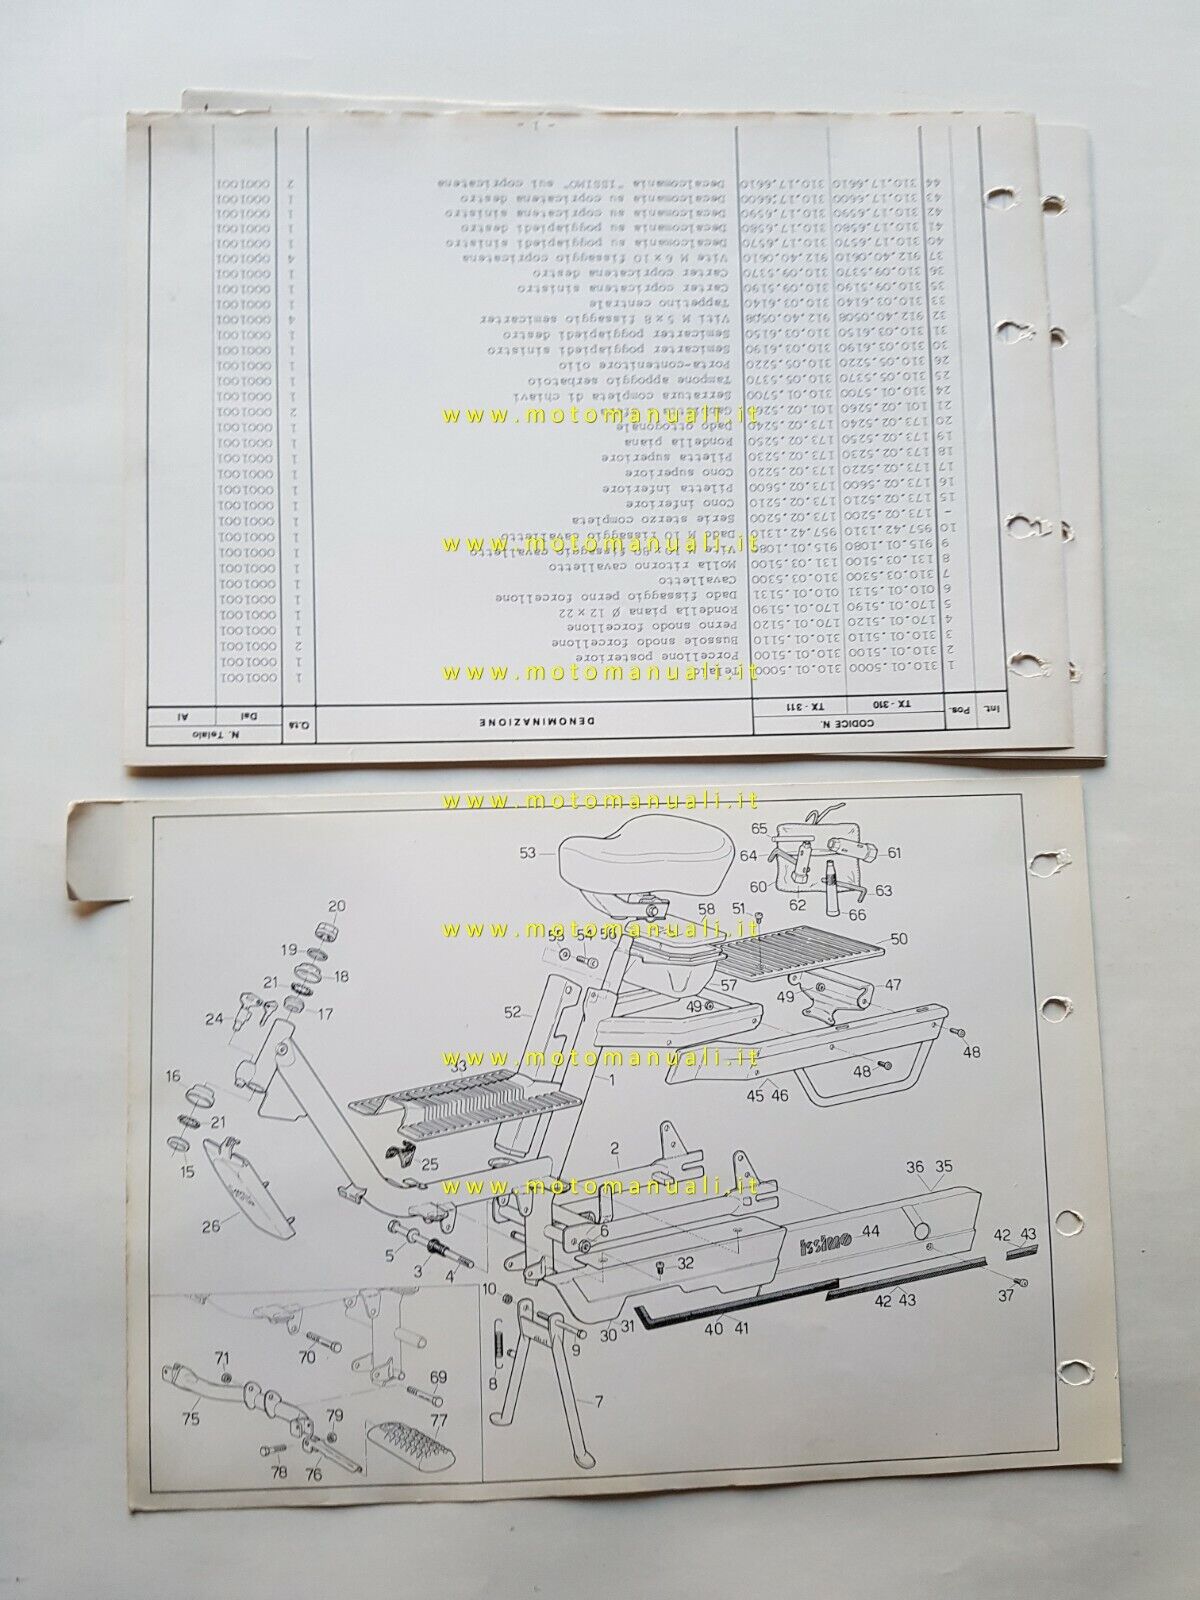 Int.	Pos.	CODICE N.	DENOMINAZIONE	Q.tà	N. Telaio
TX - 310	TX - 311	Dal	Al
1	310.01.5000	310.01.5000	Telaio	1	0001001
2	310.01.5100	310.01.5100	Forcellone posteriore	1	0001001
3	310.01.5110	310.01.5110	Bussole snodo forcellone	2	0001001
4	170.01.5120	170.01.5120	Perno snodo forcellone	1	0001001
5	170.01.5190	170.01.5190	Rondella piana Ø 12 x 22	1	0001001
6	010.01.5131	010.01.5131	Dado fissaggio perno forcellone	1	0001001
7	310.03.5300	310.03.5300	Cavalletto	1	0001001
8	131.03.5100	131.03.5100	Molla ritorno cavalletto	1	0001001
9	915.01.1080	915.01.1080	Vite M fissaggio cavalletto	1	0001001
10	957.42.1310	957.42.1310	Dado M 10 fissaggio cavalletto	1	0001001
-	173.02.5200	173.02.5200	Serie sterzo completa	1	0001001
15	173.02.5210	173.02.5210	Cono inferiore	1	0001001
16	173.02.5600	173.02.5600	Piletta inferiore	1	0001001
17	173.02.5220	173.02.5220	Cono superiore	1	0001001
18	173.02.5230	173.02.5230	Piletta superiore	1	0001001
19	173.02.5250	173.02.5250	Rondella piana	1	0001001
20	173.02.5240	173.02.5240	Dado ottogonale	1	0001001
21	101.02.5260	101.02.5260	2	0001001
24	310.01.5700	310.01.5700	Serratura completa di chiavi	1	0001001
25	310.05.5370	310.05.5370	Tampone appoggio serbatoio	1	0001001
26	310.05.5220	310.05.5220	Porta-contenitore olio	1	0001001
30	310.03.6190	310.03.6190	Semicarter poggiapiedi sinistro	1	0001001
31	310.03.6150	310.03.6150	Semicarter poggiapiedi destro	1	0001001
32	912.40.0508	912.40.0508	Viti M 5 x 8 fissaggio semicarter	4	0001001
33	310.03.6140	310.03.6140	Tappetino centrale	1	0001001
35	310.09.5190	310.09.5190	Carter copricatena sinistro	1	0001001
36	310.09.5370	310.09.5370	Carter copricatena destro	1	0001001
37	912.40.0610	912.40.0610	Vite M 6 x 10 fissaggio copricatena	4	0001001
40	310.17.6570	310.17.6570	Decalcomania su poggiapiedi sinistro	1	0001001
41	310.17.6580	310.17.6580	Decalcomania su poggiapiedi destro	1	0001001
42	310.17.6590	310.17.6590	Decalcomania su copricatena sinistro	1	0001001
43	310.17.6600	310.17.6600	Decalcomania su copricatena destro	1	0001001
44	310.17.6610	310.17.6610	Decalcomania "ISSIMO" sui copricatena	2	0001001
- 1 -
www.motomanuali.it
www.motomanuali.it
www.motomanuali.it
www.motomanuali.it
www.motomanuali.it
www.motomanuali.it
www.motomanuali.it
53
65
64
61
60
62
63
66
20
58
51
19
18
53
54
56
50
21
57
47
24
17
52
49
49
48
33
16
1
48
45 46
21
15
25
2
36 35
26
6
44
issimo
42 43
5
3
4
32
10
42 43
37
30 31
40 41
9
70
8
71
69
7
75
79
77
78
76